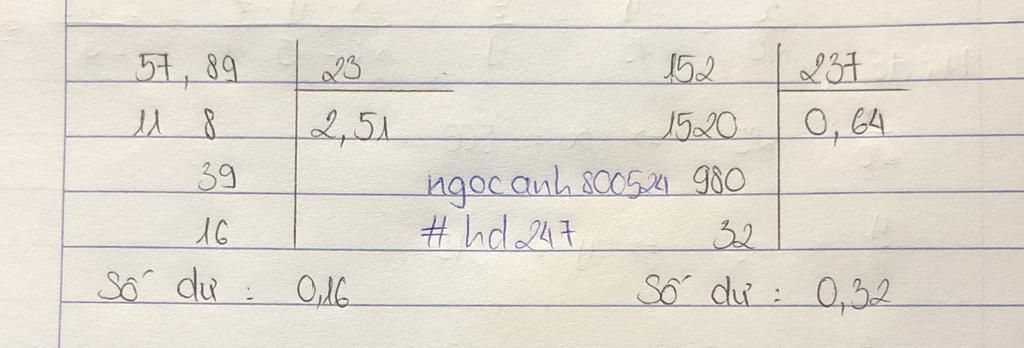 57, 89 23 152 237
11 8 2,51 1520 0,64
39 ngocanh800524 980
16 #hd247 32
Số dư : 0,16 Số dư : 0,32